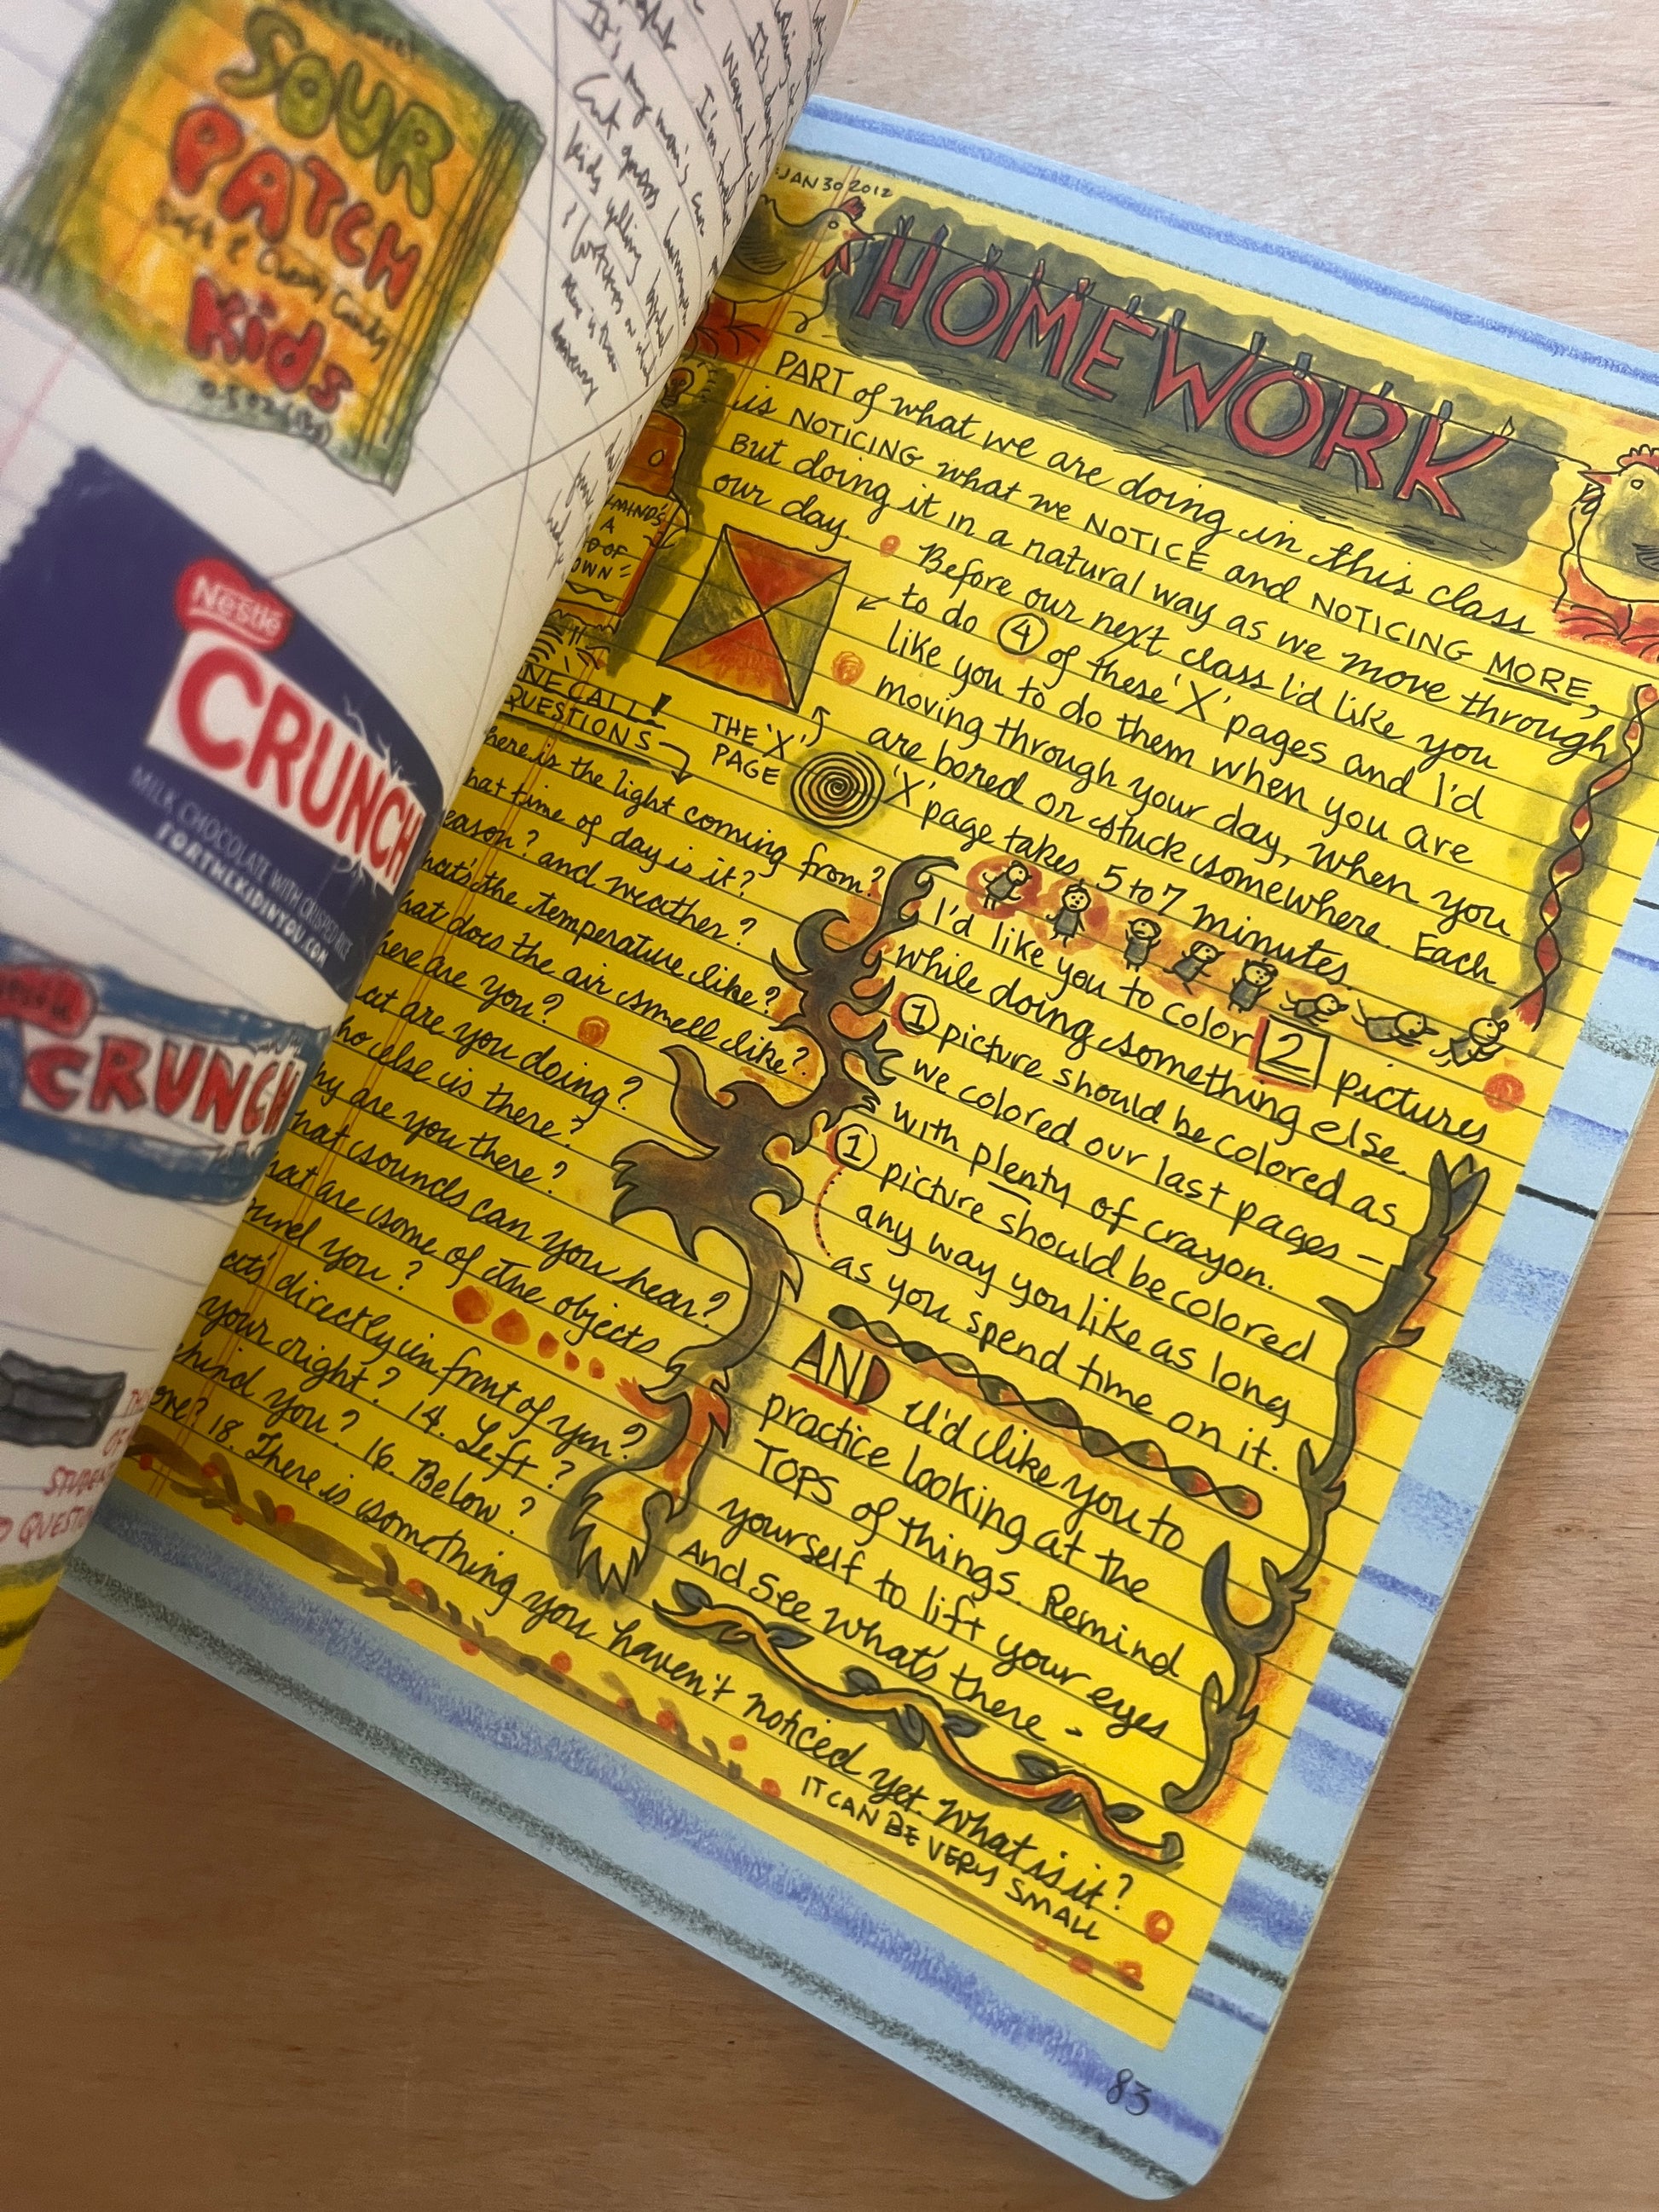 SOUR
PATCH
Soft & Chewy Candy
Kids
It's my mom's car
Cut grass
kids yelling
Nestlé
CRUNCH
MILK CHOCOLATE WITH CRISPED RICE
FORTHEKIDINYOU.COM
CRUNCH
STUDENT
QUESTI
JAN 30 2012
HOMEWORK
PART of what we are doing in this class
is NOTICING what we NOTICE and NOTICING MORE,
But doing it in a natural way as we move through
our day.
Before our next class I'd like you
to do 4 of these 'X' pages and I'd
like you to do them when you are
moving through your day, when you
are bored or stuck somewhere. Each
'X' page takes 5 to 7 minutes.
I'd like you to color 2 pictures
while doing something else.
1 picture should be colored as
we colored our last pages –
with plenty of crayon.
1 picture should be colored
any way you like as long
as you spend time on it.
AND I'd like you to
practice looking at the
TOPS of things. Remind
yourself to lift your eyes
And See what's there -
A
OWN
THE 'X'
PAGE
CALL!
QUESTIONS
here is the light coming from?
hat time of day is it?
eason? and weather?
hat's the temperature like?
hat does the air smell like?
here are you?
at are you doing?
ho else is there?
hy are you there?
hat sounds can you hear?
hat are some of the objects
ound you?
at's directly in front of you?
your right? 14. Left?
hind you? 16. Below?
ove? 18. There is something you haven't noticed yet. What is it?
IT CAN BE VERY SMALL
83